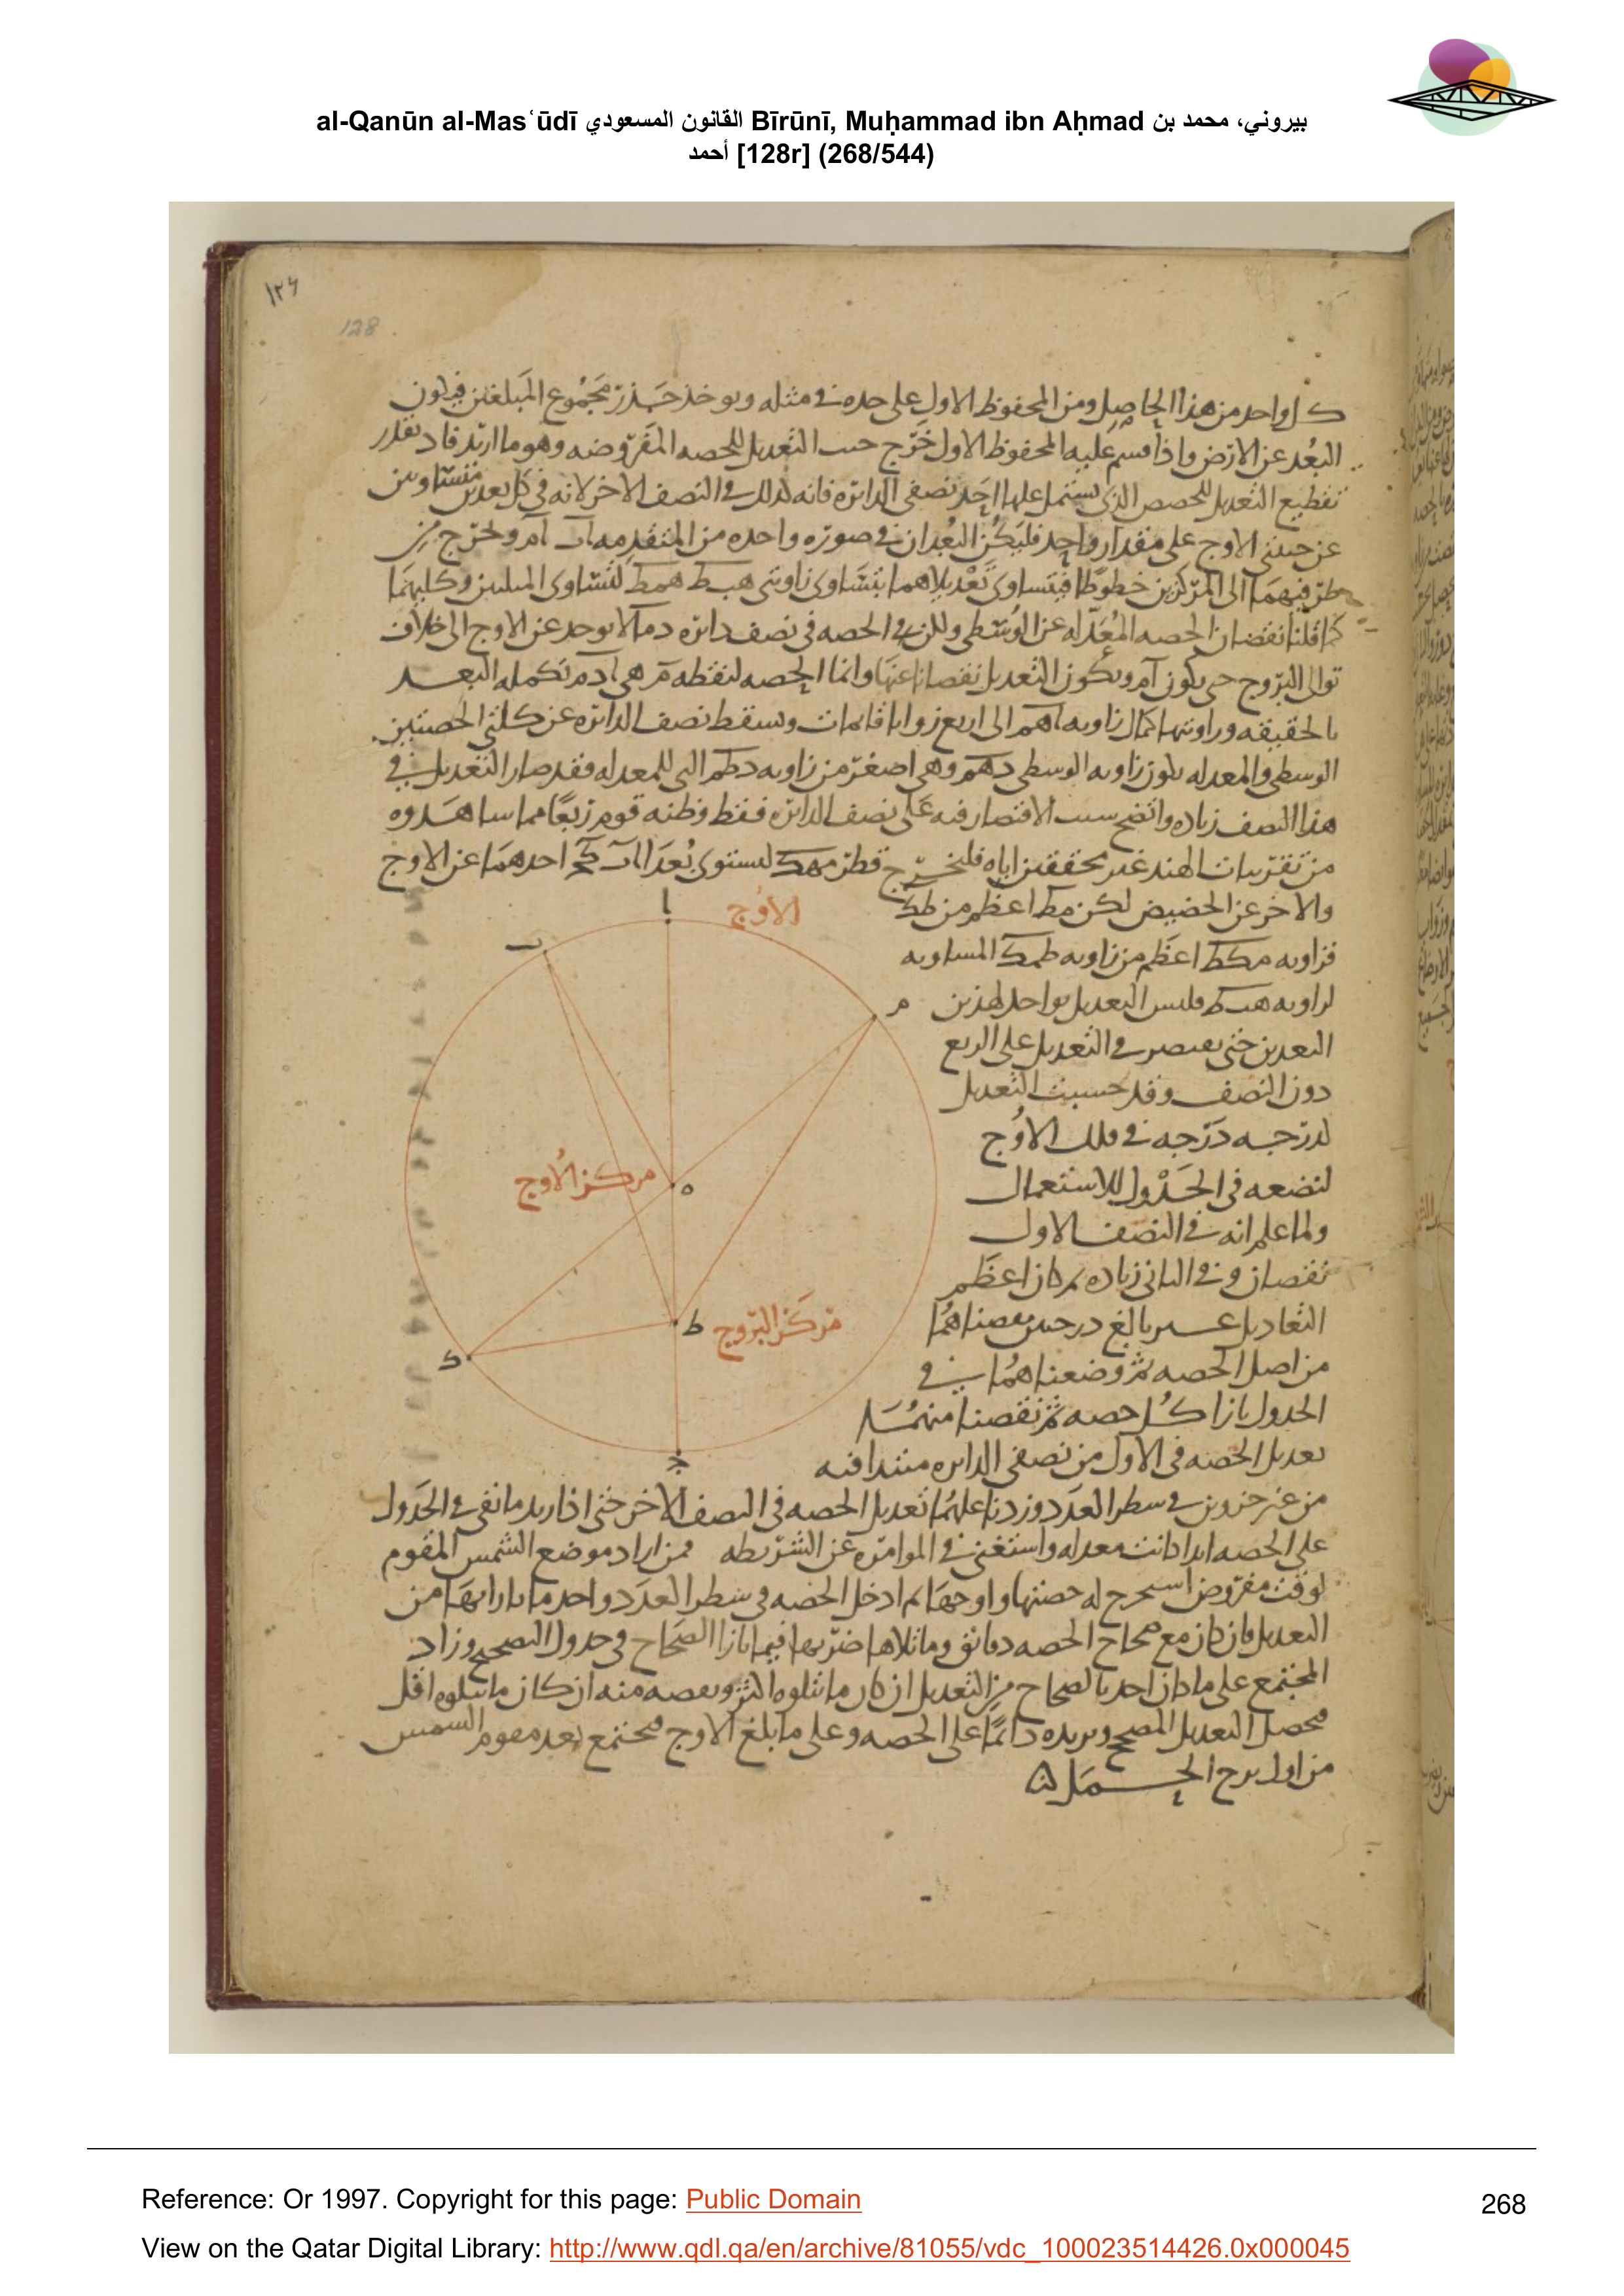 al-Qanūn al-Masʿūdī القانون المسعودي Bīrūnī, Muḥammad ibn Aḥmad بيروني، محمد بن
أحمد [128r] (268/544)
١٢٤
128
كل واحد من هذا الحاصل ومن المحفوظ الاول على حده في مثله ويوخذ جذر مجموع المبلغين فيكون
البعد عن الارض واذا قسم عليه المحفوظ الاول خرج جيب التعديل للحصه المفروضه وهو ما اردنا
تقطيع التعديل للحصص الذي يشتمل عليها احد نصفي الدائره فانه كذلك في النصف الاخر لانه في كل بعدين متساويين
عن جنبتي الاوج على مقدار واحد فليكن البعدان في صوره واحده من المتقدمه اب ام ونخرج من
طرفيهما الى المركزين خطوطا فيتساوى تعديلاهما بتساوى زاويتي هبط همط لتساوى المثلثين وكليهما
كما قلنا نقصان الحصه المعدله عن الوسطى ولكن الحصه في نصف دائره دما لا يوخذ عن الاوج الى خلاف
توالى البروج حتى يكون ام ويكون التعديل نقصانا عنها وانما الحصه لنقطه م هي ادم تكمله البعد
بالحقيقه وزاويتها كمال زاويه اهم الى اربع زوايا قايمات وسقط نصف الدائره عن كلتي الحصتين
الوسطى والمعدله يكون زاويه الوسطى دهم وهي اصغر من زاويه دطم التي للمعدله فقد صار التعديل في
هذا النصف زياده واتضح سبب الاقتصار فيه على نصف الدائره فقط وظنه قوم ربعا مما شاهدوه
من تقريبات الهند غير محققين اياه فليخرج قطر مهك ليستوى بعدا اب كج احدهما عن الاوج
والاخر عن الحضيض لكن مط اعظم من طك
فزاويه مكط اعظم من زاويه طمك المساويه
لزاويه هبط فليس التعديل بواحد لهذين
البعدين حتى يقتصر في التعديل على الربع
دون النصف وقد حسبت التعديل
لدرجه درجه في فلك الاوج
لنضعه في الجدول للاستعمال
ولما علم انه في النصف الاول
نقصان وفي الثاني زياده وكان اعظم
التعاديل غير بالغ درجتين نقصناهما
من اصل الحصه ثم وضعناهما في
الجدول بازا كل حصه ثم نقصنا منهما
تعديل الحصه في الاول من نصفي الدائره مبتدا فيه
من غير جزوين في سطر العدد وزدنا عليهما تعديل الحصه في النصف الاخر حتى اذا زيد ما بقي في الجدول
على الحصه ابدا كانت معدله واستغنى في الموامره عن الشريطه فمن اراد موضع الشمس المقوم
لوقت مفروض استخرج له حصتها واوجها ثم ادخل الحصه في سطر العدد واخذ ما بازائها من
التعديل فان كان مع صحاح الحصه دقائق وما تلاها ضربها فيما بازا الصحاح في جدول التصحيح وزاد
المجتمع على ما كان اخذ بالصحاح من التعديل ان كان ما يتلوه اكثر ونقصه منه ان كان ما يتلوه اقل
فيحصل التعديل المصحح ويزيده دائما على الحصه وعلى ما بلغ الاوج فيجتمع بعد مقوم الشمس
من اول برج الحمل
الاوج
ا
ب
م
مركز الاوج
ه
ط
مركز البروج
ك
ج
Reference: Or 1997. Copyright for this page: Public Domain
268
View on the Qatar Digital Library: http://www.qdl.qa/en/archive/81055/vdc_100023514426.0x000045